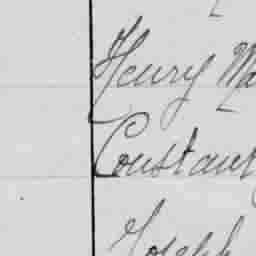 Henry Ma
Constant
Joseph